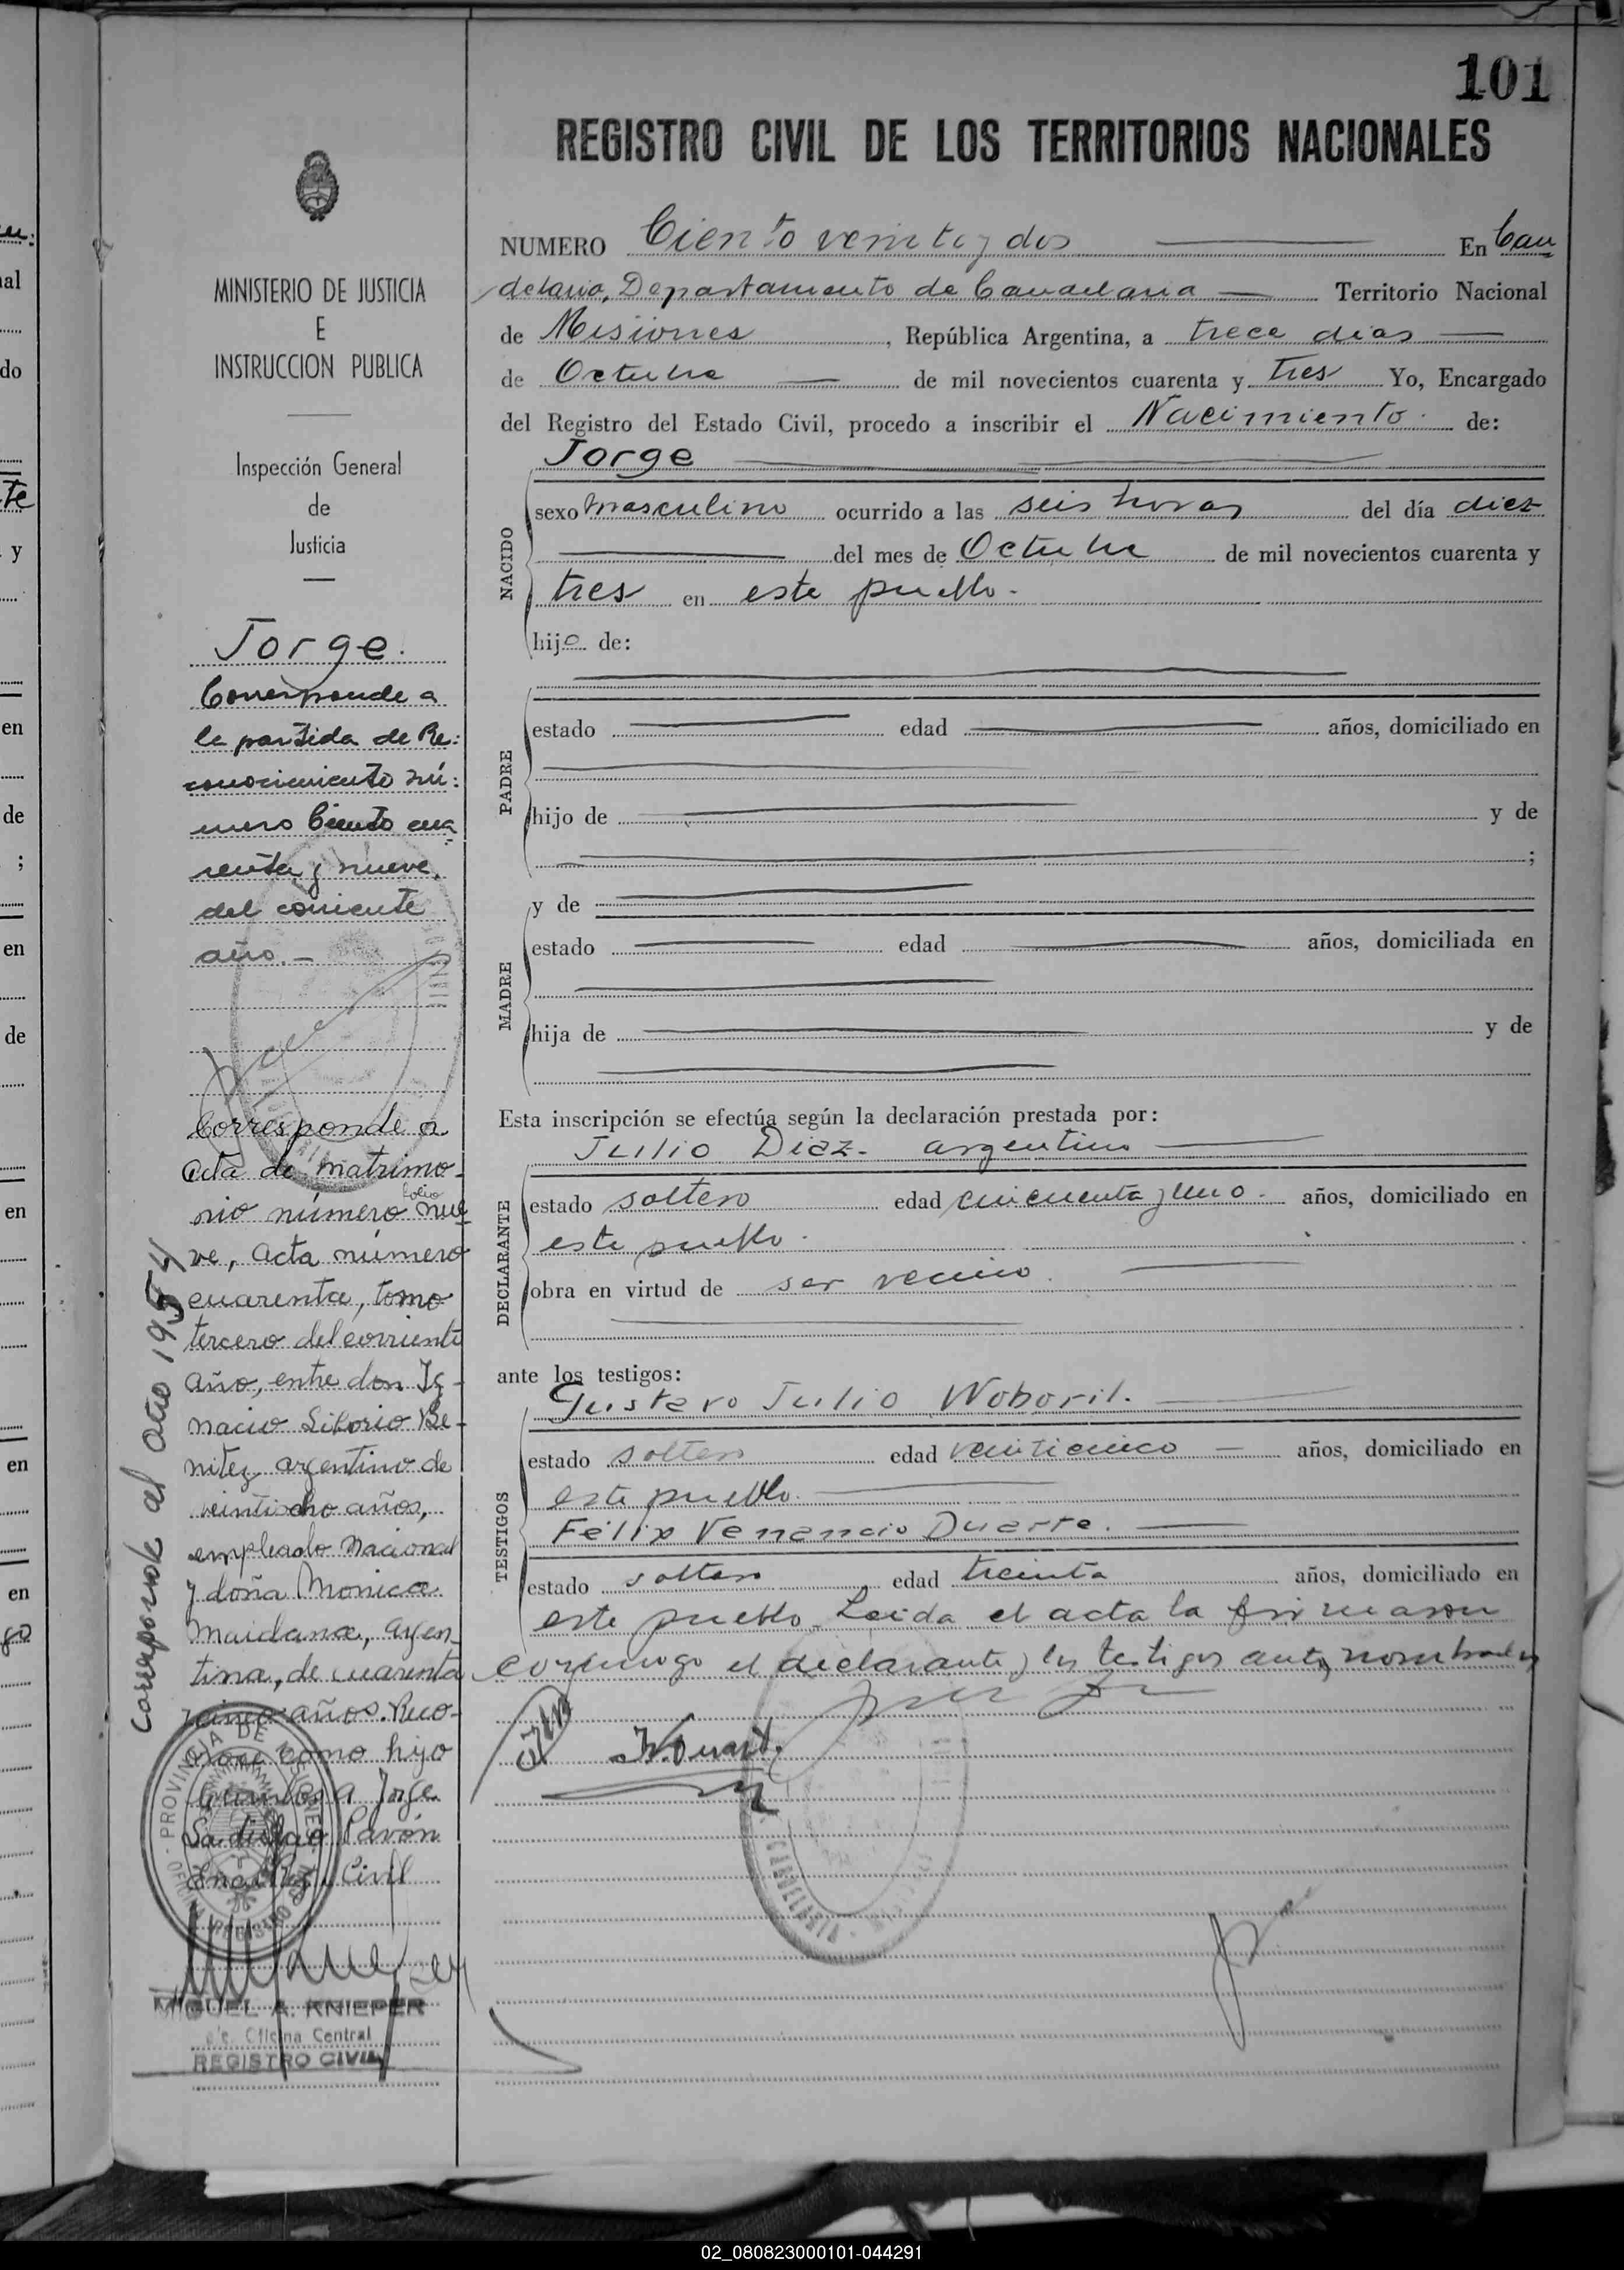 101
REGISTRO CIVIL DE LOS TERRITORIOS NACIONALES
NUMERO Ciento veinte y dos En Can
delaria, Departamento de Candelaria Territorio Nacional
de Misiones, República Argentina, a trece dias
de Octubre de mil novecientos cuarenta y tres Yo, Encargado
del Registro del Estado Civil, procedo a inscribir el Nacimiento. de:
Jorge
NACIDO
sexo masculino ocurrido a las seis horas del día diez
del mes de Octubre de mil novecientos cuarenta y
tres en este pueblo.
hijo de:
PADRE
estado edad años, domiciliado en
hijo de y de
;
y de
MADRE
estado edad años, domiciliada en
hija de y de
Esta inscripción se efectúa según la declaración prestada por:
Julio Diaz. argentino
DECLARANTE
estado soltero edad cincuenta y uno. años, domiciliado en
este pueblo.
obra en virtud de ser vecino.
ante los testigos:
Gustavo Julio Woboril.
TESTIGOS
estado soltero edad veinticinco años, domiciliado en
este pueblo.
Félix Venancio Duarte.
estado soltero edad treinta años, domiciliado en
este pueblo. Leida el acta la firmaron
conmigo el declarante y los testigos antes nombrados
CANDELARIA
MINISTERIO DE JUSTICIA
E
INSTRUCCION PUBLICA
Inspección General
de
Justicia
Jorge.
Corresponde a
la partida de Re:
conocimiento nú:
mero Ciento cua
renta y nueve.
del corriente
año.
Corresponde a
acta de matrimo-
folio
nio número nue
ve, acta número
cuarenta, tomo
tercero del corriente
año, entre don Ig-
nacio Liborio Be-
nitez, argentino de
veintiocho años,
empleado Nacional
y doña Monica
Maidana, argen-
tina, de cuarenta
y cinco años. Reco-
como hijo
a Jorge
Pavón
Civil
Corresponde al año 1954
PROVINCIA DE MISIONES
MIGUEL A. KNIEPER
Oficina Central
REGISTRO CIVIL
en
de
en
de
en
en
en
02_080823000101-044291